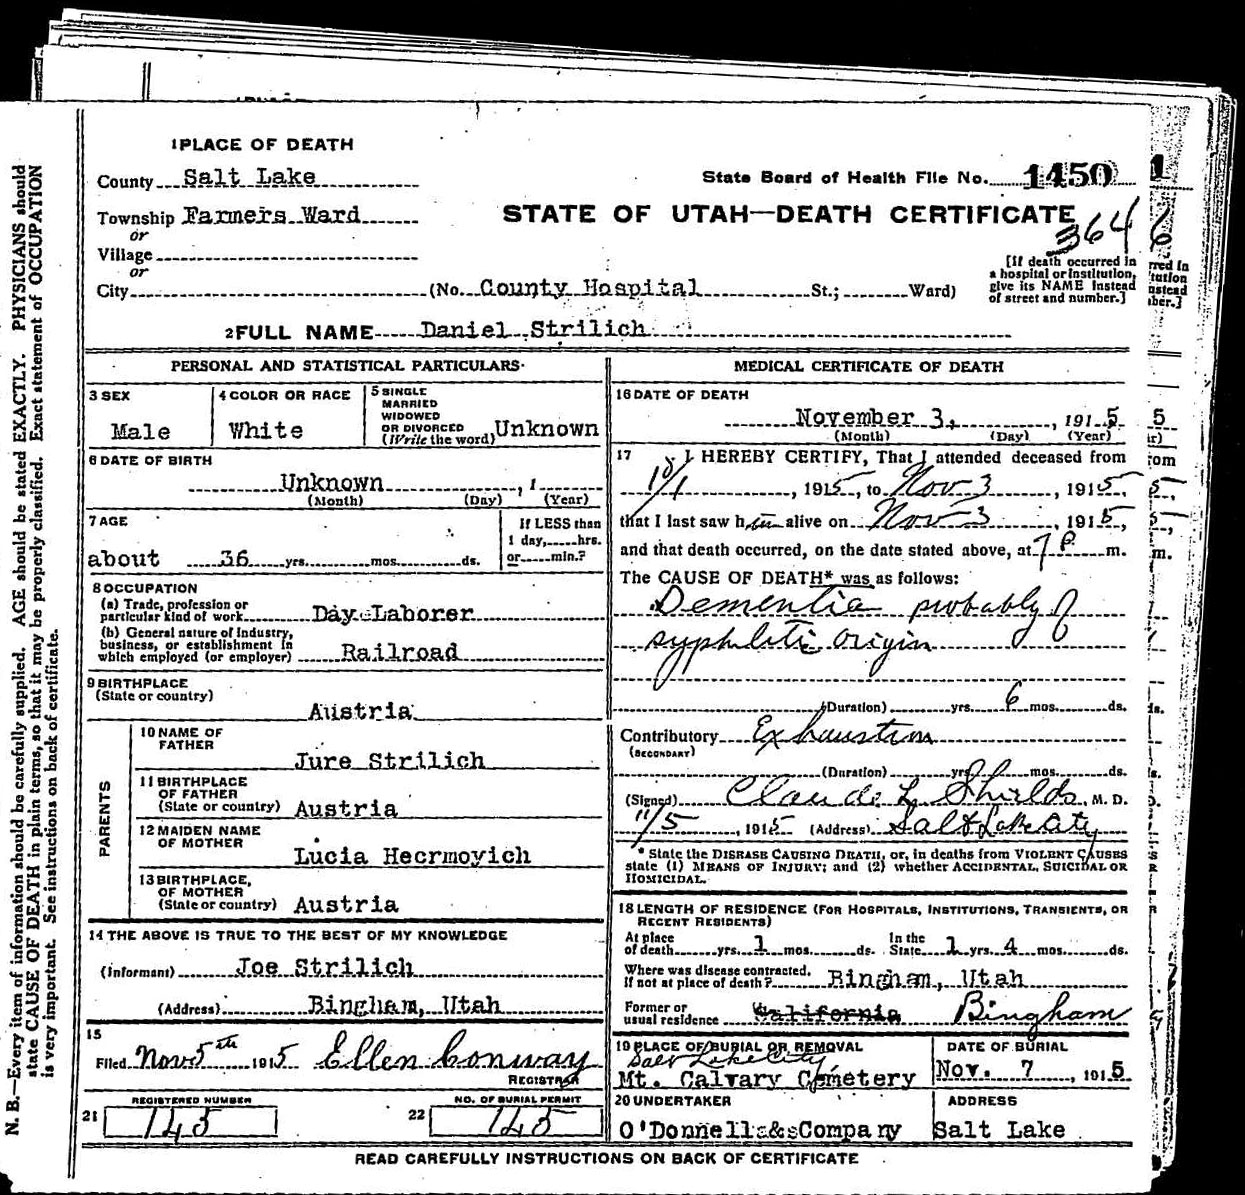 1 PLACE OF DEATH
County Salt Lake
State Board of Health File No. 1450
Township Farmers Ward
STATE OF UTAH—DEATH CERTIFICATE
364
or
Village
or
City (No. County Hospital St.; Ward)
[If death occurred in
a hospital or institution,
give its NAME instead
of street and number.]
2 FULL NAME Daniel Strilich
PERSONAL AND STATISTICAL PARTICULARS
3 SEX
Male
4 COLOR OR RACE
White
5 SINGLE
MARRIED
WIDOWED
OR DIVORCED
(Write the word) Unknown
6 DATE OF BIRTH
Unknown , 1
(Month) (Day) (Year)
7 AGE
about 36 yrs. mos. ds.
If LESS than
1 day, hrs.
or min.?
8 OCCUPATION
(a) Trade, profession or
particular kind of work Day Laborer
(b) General nature of Industry,
business, or establishment in
which employed (or employer) Railroad
9 BIRTHPLACE
(State or country)
Austria
PARENTS
10 NAME OF
FATHER
Jure Strilich
11 BIRTHPLACE
OF FATHER
(State or country) Austria
12 MAIDEN NAME
OF MOTHER
Lucia Hecrmovich
13 BIRTHPLACE,
OF MOTHER
(State or country) Austria
14 THE ABOVE IS TRUE TO THE BEST OF MY KNOWLEDGE
(Informant) Joe Strilich
(Address) Bingham, Utah
15
Filed Nov 5th 1915 Ellen Conway
REGISTRAR
REGISTERED NUMBER
21 145
NO. OF BURIAL PERMIT
22 145
MEDICAL CERTIFICATE OF DEATH
16 DATE OF DEATH
November 3, , 1915
(Month) (Day) (Year)
17 I HEREBY CERTIFY, That I attended deceased from
10/1 , 1915, to Nov 3 , 1915,
that I last saw him alive on Nov 3 , 1915,
and that death occurred, on the date stated above, at 7 P m.
The CAUSE OF DEATH* was as follows:
Dementia probably of
syphlitic origin
(Duration) yrs. 6 mos. ds.
Contributory Exhaustion
(SECONDARY)
(Duration) yrs. mos. ds.
(Signed) Claude L Shields, M. D.
11/5 , 1915 (Address) Salt Lake City
* State the DISEASE CAUSING DEATH, or, in deaths from VIOLENT CAUSES
state (1) MEANS OF INJURY; and (2) whether ACCIDENTAL, SUICIDAL OR
HOMICIDAL.
18 LENGTH OF RESIDENCE (FOR HOSPITALS, INSTITUTIONS, TRANSIENTS, OR
RECENT RESIDENTS)
At place
of death yrs. 1 mos. ds. In the
State 1 yrs. 4 mos. ds.
Where was disease contracted,
If not at place of death? Bingham, Utah
Former or
usual residence California Bingham
19 PLACE OF BURIAL OR REMOVAL
Salt Lake City
Mt. Calvary Cemetery
DATE OF BURIAL
Nov. 7 , 1915
20 UNDERTAKER
O'Donnell & Company
ADDRESS
Salt Lake
READ CAREFULLY INSTRUCTIONS ON BACK OF CERTIFICATE
N. B.—Every item of information should be carefully supplied. AGE should be stated EXACTLY. PHYSICIANS should
state CAUSE OF DEATH in plain terms, so that it may be properly classified. Exact statement of OCCUPATION
is very important. See instructions on back of certificate.